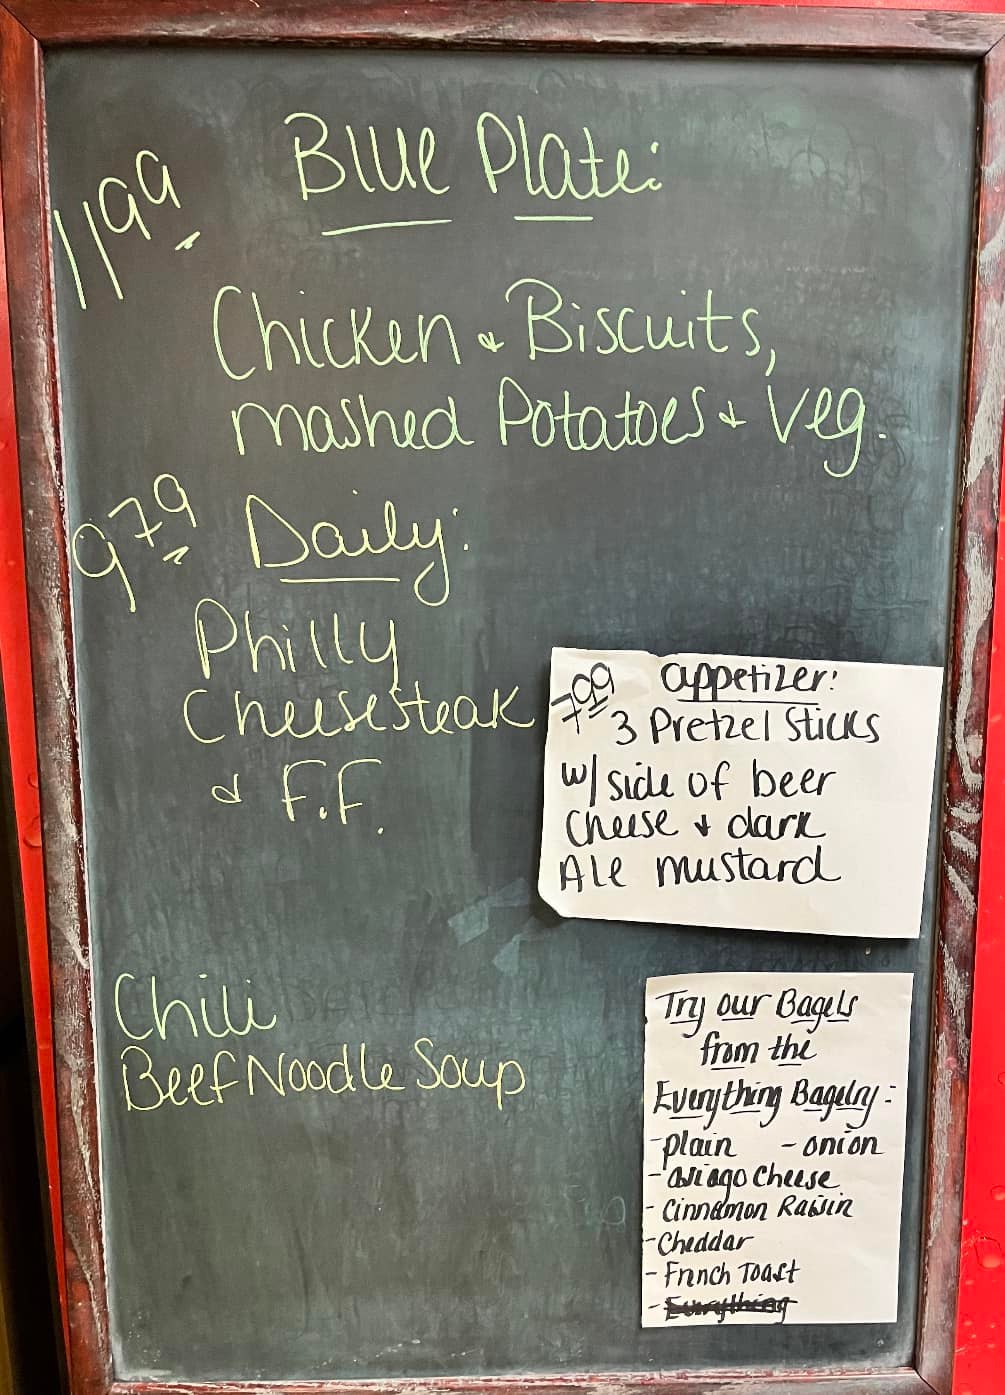 Blue Plate:
11.99
Chicken & Biscuits,
mashed Potatoes & Veg.
9.79
Daily:
Philly
Cheesesteak
& F.F.
7.99
appetizer:
3 Pretzel Sticks
w/ side of beer
Cheese & dark
Ale mustard
Chili
Beef Noodle Soup
Try our Bagels
from the
Everything Bagelry:
- plain - onion
- asiago Cheese
- Cinnamon Raisin
- Cheddar
- French Toast
- Everything